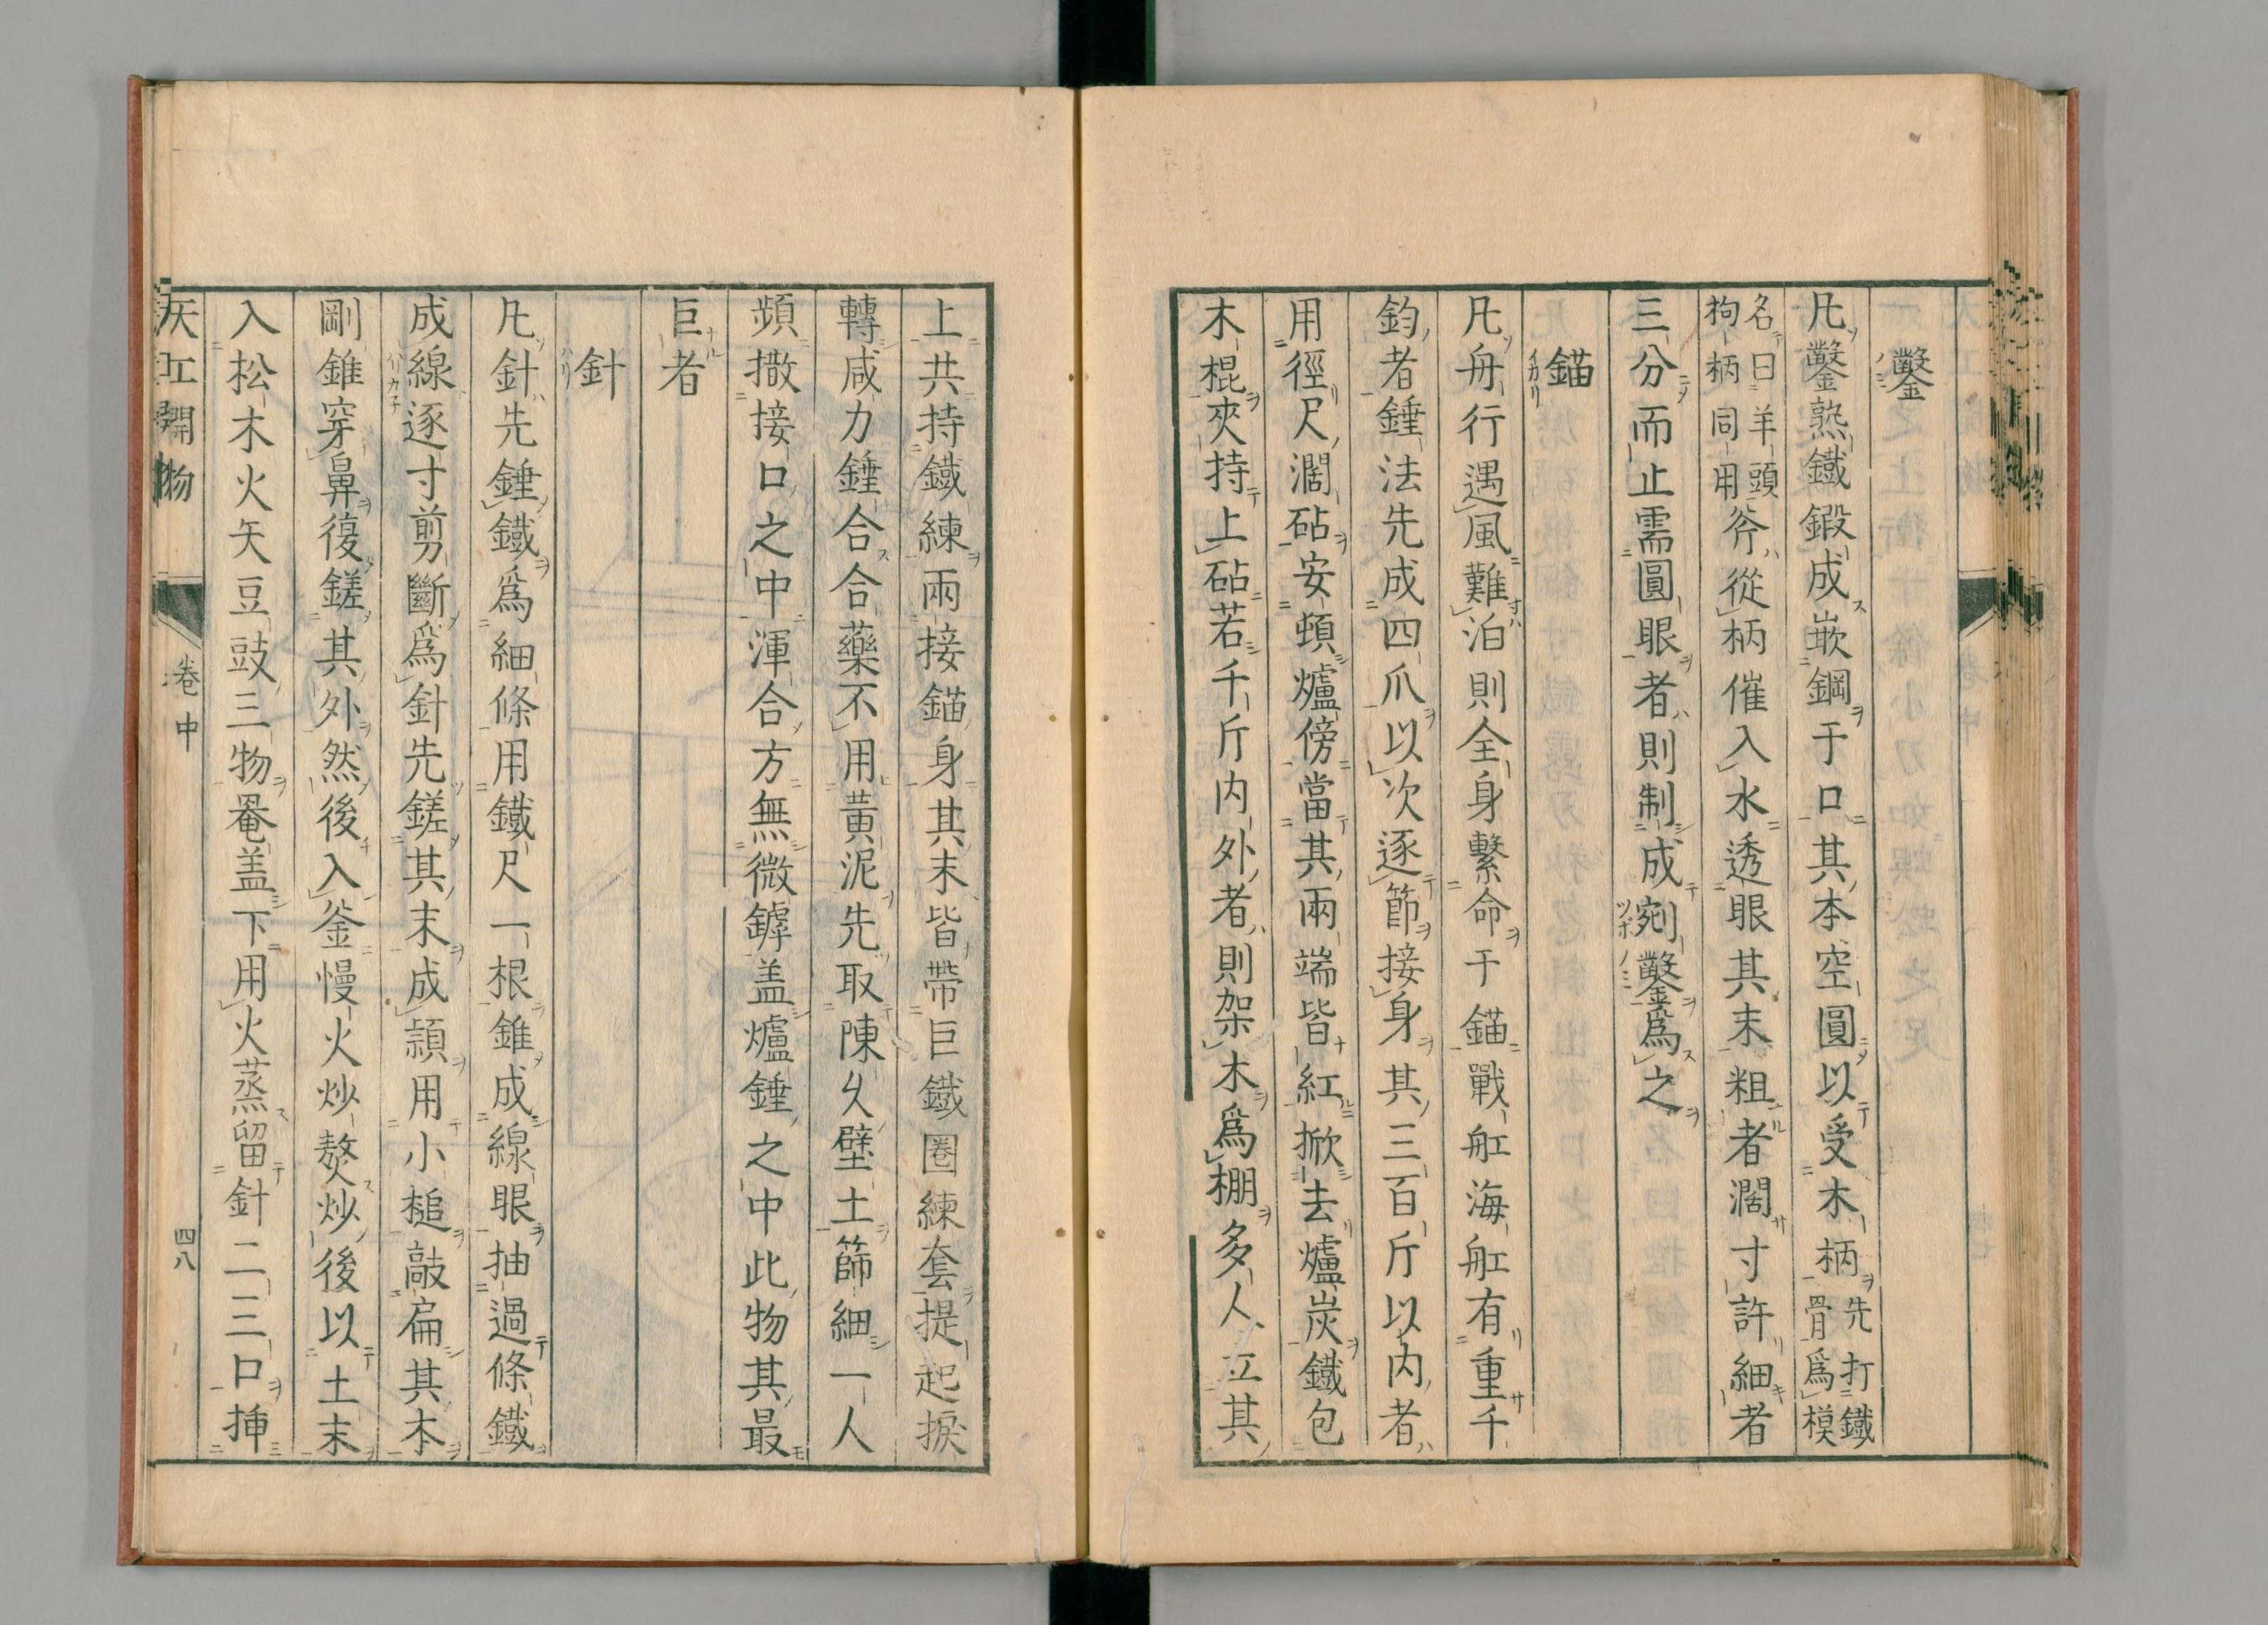 鑿
凡鑿熟鐵鍛成嵌鋼于口其本空圓以受木柄先打鐵骨爲模
名曰羊頭拘柄同用斧從柄催入水透眼其末粗者濶寸許細者
三分而止需圓眼者則制成剜鑿爲之
錨
凡舟行遇風難泊則全身繫命于錨戰舡海舡有重千
鈞者錘法先成四爪以次逐節接身其三百斤以內者
用徑尺濶砧安頓爐傍當其兩端皆紅掀去爐炭鐵包
木棍夾持上砧若千斤內外者則架木爲棚多人立其
上共持鐵練兩接錨身其末皆帶巨鐵圈練套提起捩
轉咸力錘合合藥不用黃泥先取陳久壁土篩細一人
頻撒接口之中渾合方無微罅盖爐錘之中此物其最
巨者
針
凡針先錘鐵爲細條用鐵尺一根錐成線眼抽過條鐵
成線逐寸剪斷爲針先鎈其末成頴用小槌敲扁其本
剛錐穿鼻復鎈其外然後入釜慢火炒熬炒後以土末
入松木火矢豆豉三物罨盖下用火蒸留針二三口挿
天工開物
卷中
四八